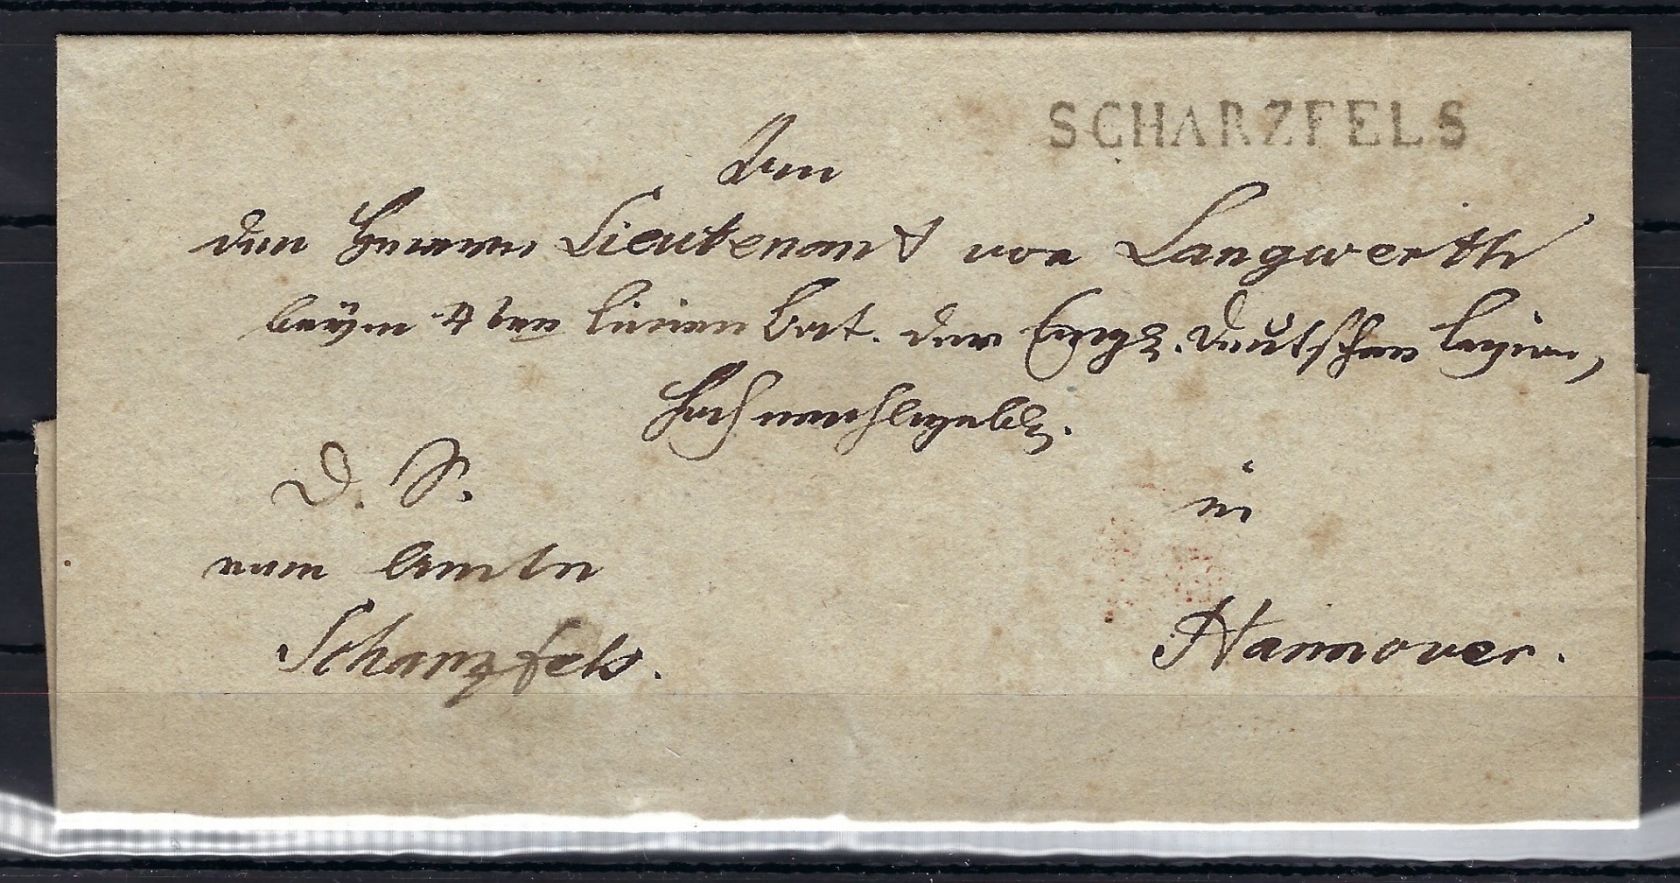 SCHARZFELS
An
den Herrn Lieutenant von Langwerth
beÿm 4ten linien Bat. der Engl. deutschen Legion,
Hochwohlgeb.
D. S.
vom Amte
in
Scharzfels.
Hannover.